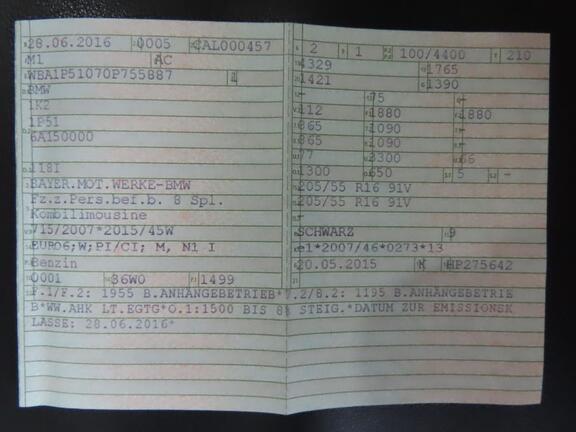 28.06.2016 0005 CAL000457
M1 AC
WBA1P51070P755887
BMW
1K2
1P51
6A150000
118I
BAYER.MOT.WERKE-BMW
Fz.z.Pers.bef.b. 8 Spl.
Kombilimousine
715/2007*2015/45W
EURO6;W;PI/CI; M, N1 I
Benzin
0001 36W0 1499
2 1 100/4400 210
4329 1765
1421 1390
— 75 —
112 1880 1880
865 1090 —
865 1090 —
77 3300 66
1300 650 5 —
205/55 R16 91V
205/55 R16 91V
—
SCHWARZ 9
e1*2007/46*0273*13
20.05.2015 K HP275642
F.1/F.2: 1955 B.ANHÄNGEBETRIEB*7.2/8.2: 1195 B.ANHÄNGEBETRIE
B*WW.AHK LT.EGTG*O.1:1500 BIS 8% STEIG.*DATUM ZUR EMISSIONSK
LASSE: 28.06.2016*